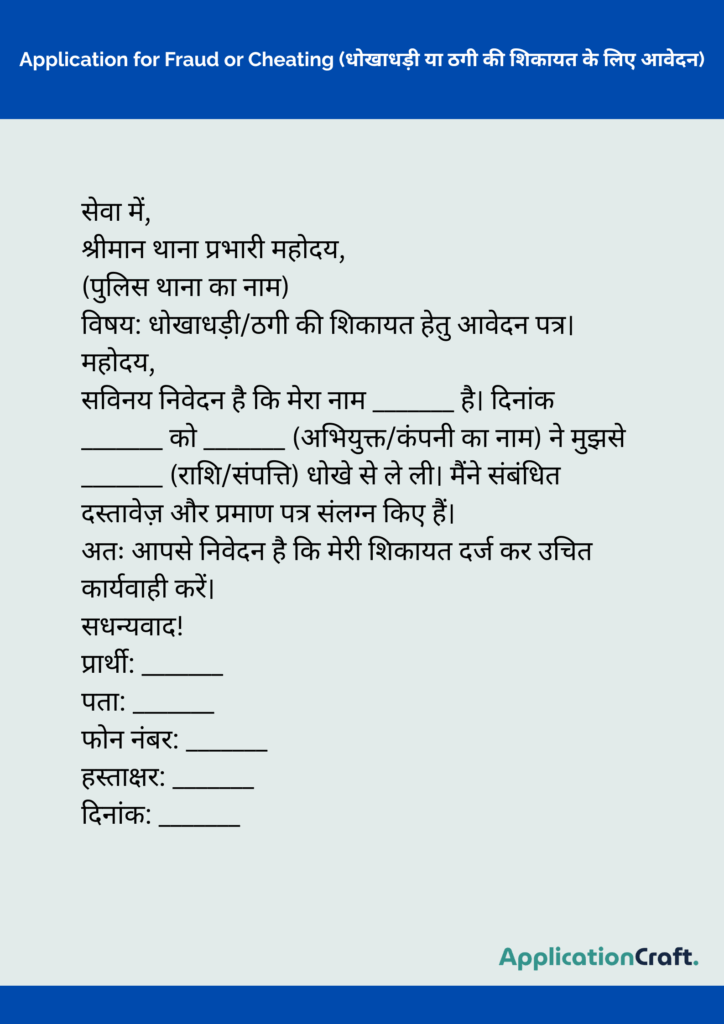 Application for Fraud or Cheating (धोखाधड़ी या ठगी की शिकायत के लिए आवेदन)
सेवा में,
श्रीमान थाना प्रभारी महोदय,
(पुलिस थाना का नाम)
विषय: धोखाधड़ी/ठगी की शिकायत हेतु आवेदन पत्र।
महोदय,
सविनय निवेदन है कि मेरा नाम _______ है। दिनांक
_______ को _______ (अभियुक्त/कंपनी का नाम) ने मुझसे
_______ (राशि/संपत्ति) धोखे से ले ली। मैंने संबंधित
दस्तावेज़ और प्रमाण पत्र संलग्न किए हैं।
अतः आपसे निवेदन है कि मेरी शिकायत दर्ज कर उचित
कार्यवाही करें।
सधन्यवाद!
प्रार्थी: _______
पता: _______
फोन नंबर: _______
हस्ताक्षर: _______
दिनांक: _______
ApplicationCraft.